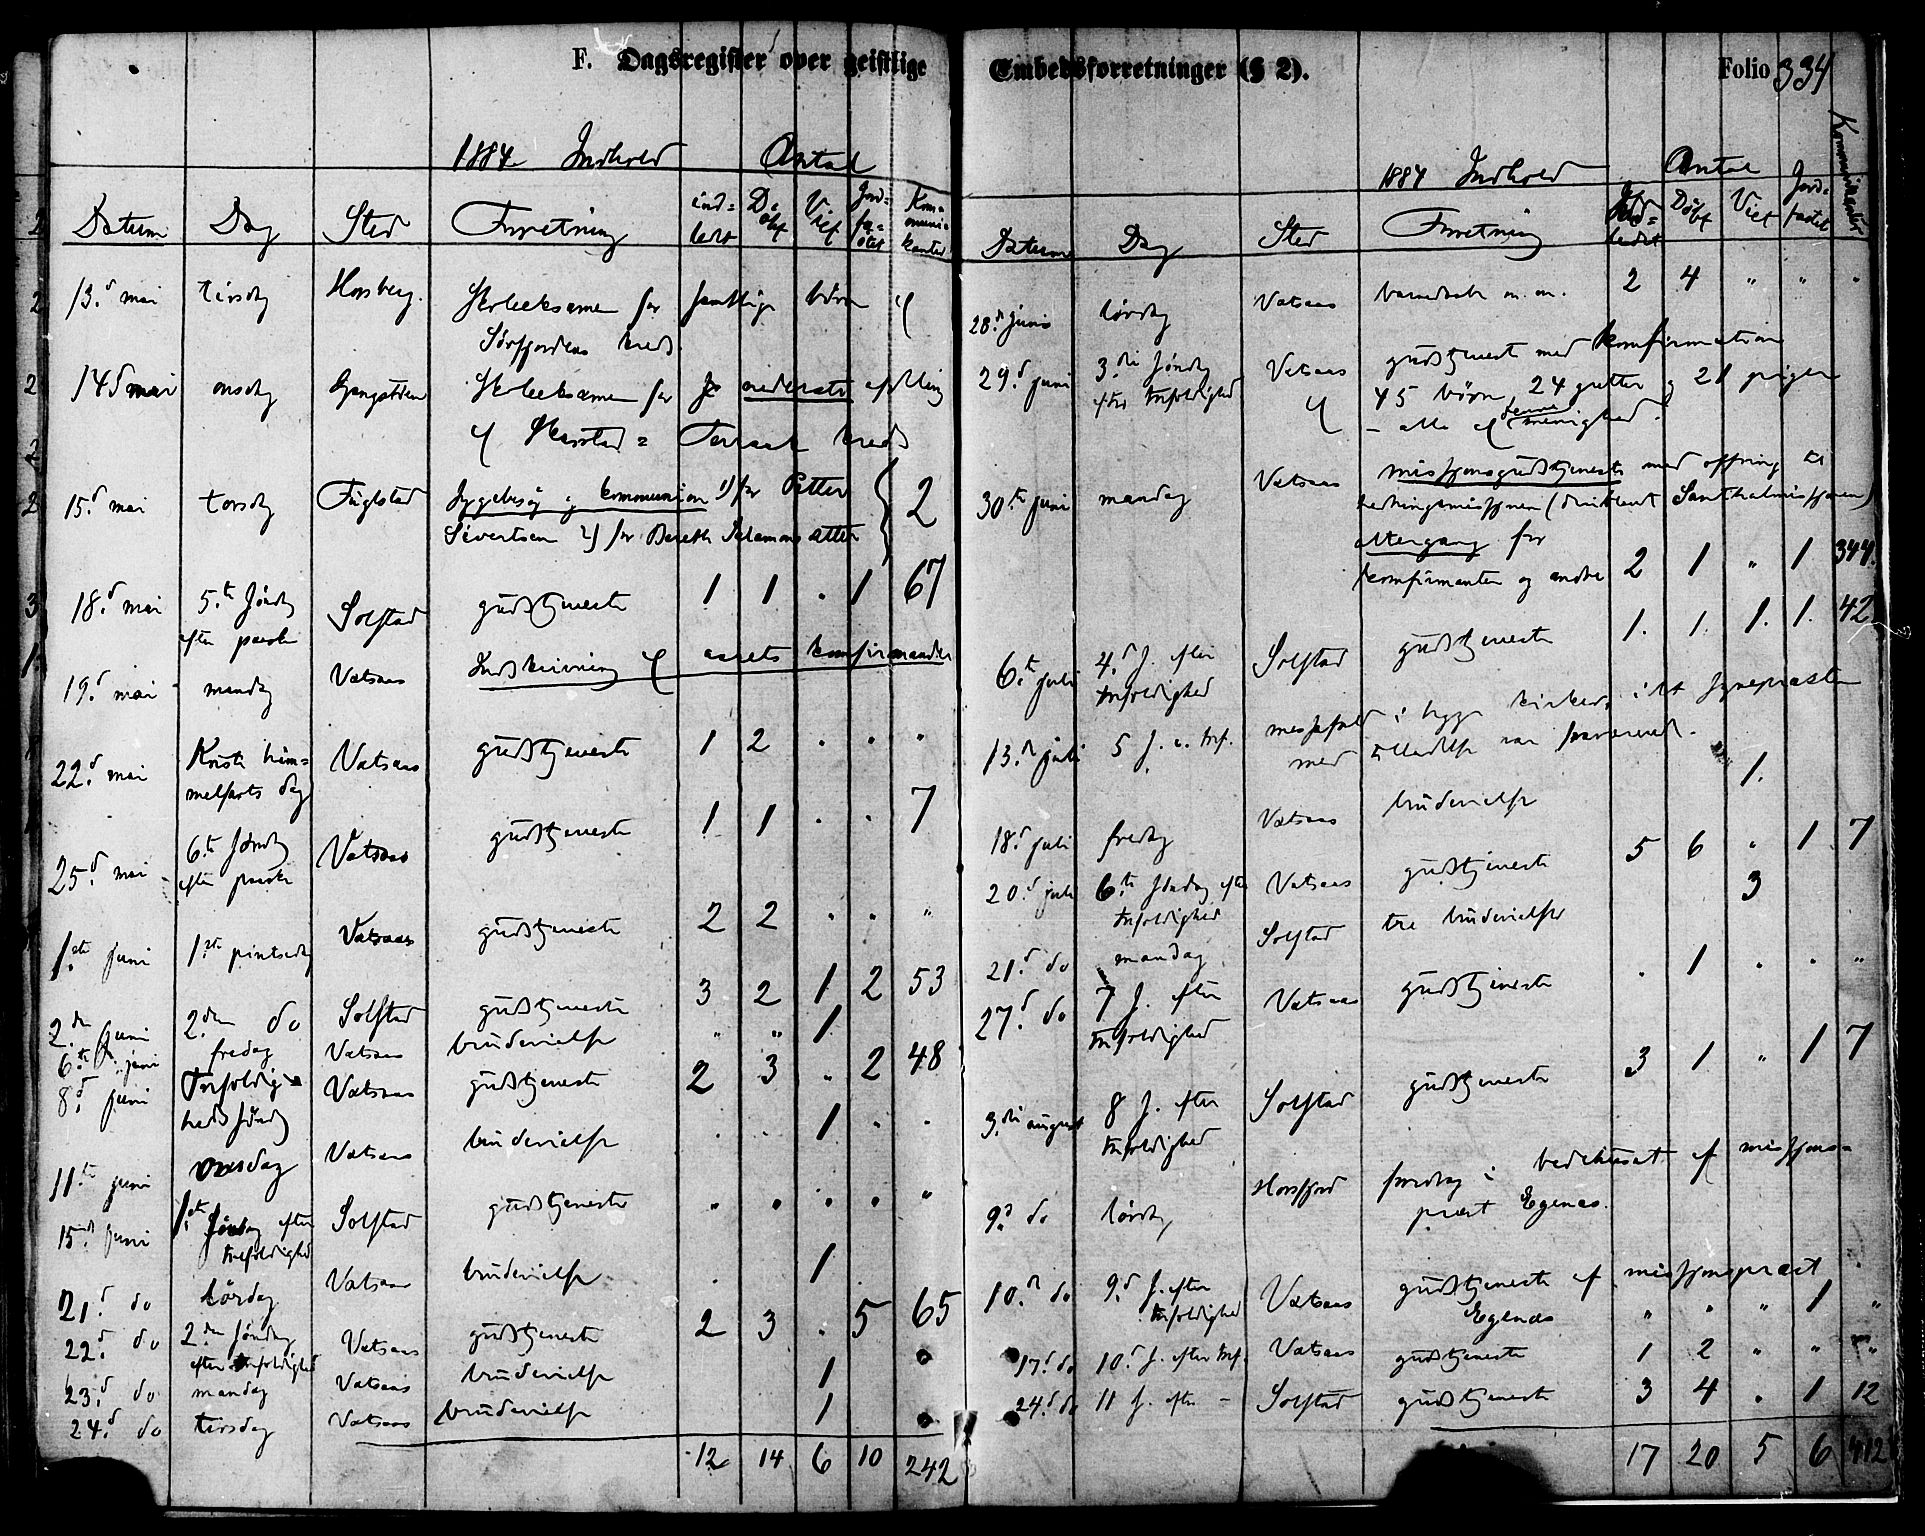 F. Dagsregister over geistlige Embedsforretninger (§ 2). Folio 334
1884 Indhold Antal
Datum Dag Sted Forretning ind=ledt Døbt Viet Jordfæstet Kommunikanter
13.d mai tirsdag Horsberg. Skoleeksamen for samtlige børn af
Sørfjordens kreds
14d mai onsdag Skoleeksamen for nederste afdeling
af kreds
15.d mai torsdag Fuglstad Sygebesøg og kommunion 1) for Petter 2
Sivertsen 2) for Bereth
18.d mai 5.te søndag efter paaske Solstad gudstjeneste 1 1 . 1 67
19.d mai mandag Vatsaas Indskrivning af aarets konfirmander
22.d mai Kristi himmelfarts dag Vatsaas gudstjeneste 1 2 . . "
25.d mai 6.te søndag efter paaske Vatsaas gudstjeneste 1 1 . . 7
1.ste juni 1.ste pintsedag Vatsaas gudstjeneste 2 2 . . "
2.den juni 2.den do Solstad gudstjeneste 3 2 1 2 53
6.te juni fredag Vatsaas brudevielse " " 1
8.d juni Trefoldigheds søndag Vatsaas gudstjeneste 2 3 . 2 48
11.te juni onsdag Vatsaas brudevielse . . 1 . .
15.d juni 1.ste søndag efter trefoldighed Solstad gudstjeneste " " " " "
21.d do lørdag Vatsaas brudevielse . 1
22.d do 2.den søndag efter trefoldighed Vatsaas gudstjeneste 2 3 . 5 65
23.d do mandag Vatsaas brudevielse 1
24.d do tirsdag Vatsaas brudevielse 1
12 14 6 10 242
1884 Indhold Antal
Datum Dag Sted Forretning Indledet Døbt Viet Jordfæstet Kommunikanter
28.d juni lørdag Vatsaas barnedaab m. m. 2 4 " " "
29.d juni 3.die søndag efter trefoldighed Vatsaas gudstjenest med konfirmation
af 45 børn, 24 gutter og 21 piger
– alle af denne menighed.
30.te juni mandag Vatsaas missjonsgudstjeneste med offring til
hedningemissjonen (Santhalmissjonen)
altergang for
konfirmanter og andre 2 1 " 1 344.
6.te juli 4.d s. efter trefoldighed Solstad gudstjeneste 1. 1. 1. 1. 42
13.d juli 5 s. e. tref. messefald i begge kirker, idet sognepræsten
med tilladelse var fraværende.
18.d juli fredag Vatsaas brudevielse 1.
20.d juli 6.te søndag efter trefoldighed Vatsaas gudstjeneste 5 6 " 1 7
21.d do mandag Solstad tre brudevielser 3
27.d do 7 s. efter trefoldighed Vatsaas gudstjeneste . 1 . . "
3.die august 8 s. efter trefoldighed Solstad gudstjeneste 3 1 " 1 7
9.d do lørdag Horsfjord foredrag i bedehuset af missjons-
præst Egenæs.
10.d do 9.d s. efter trefoldighed Vatsaas gudstjeneste af missjonspræst
Egenæs " " " 1 "
17.d do 10.d s. efter tref. Vatsaas gudstjeneste 1 2 " " "
24.d do 11 s. efter – Solstad gudstjeneste 3 4 . 1 12
17 20 5 6 412